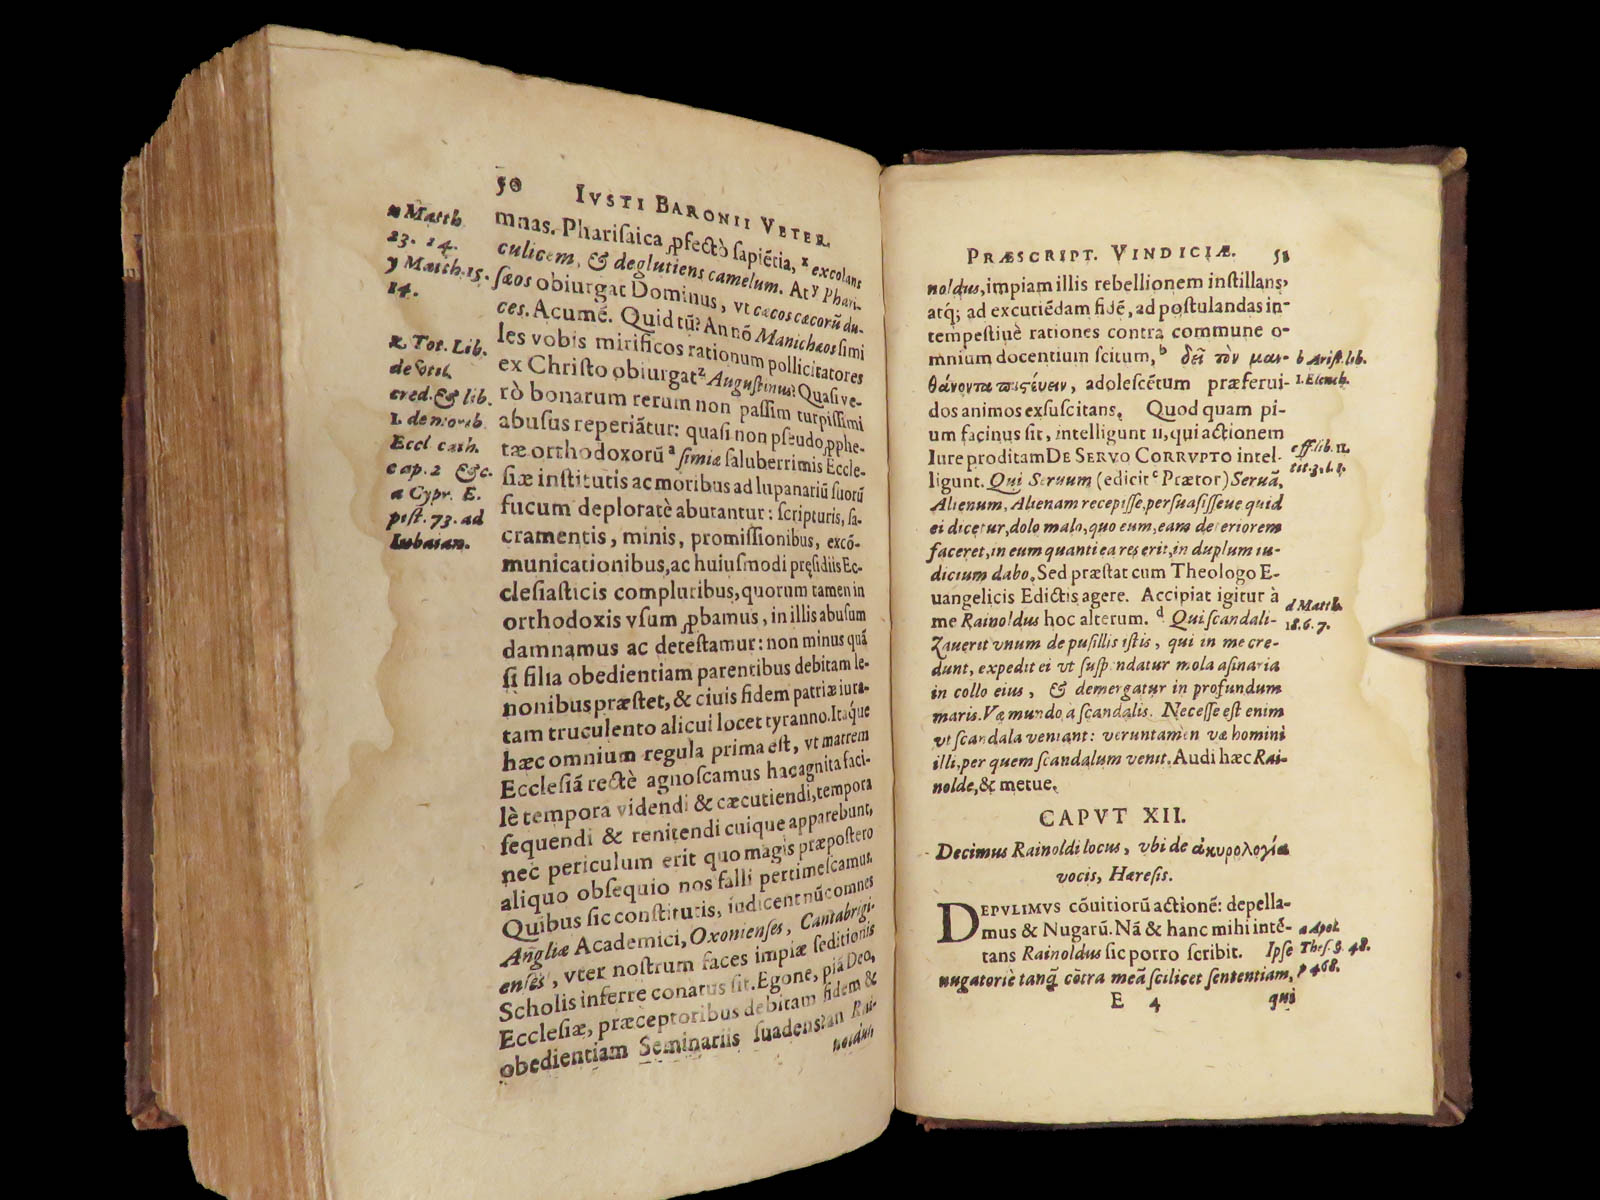 50 IVSTI BARONII VETER.
n Matth.
23. 24.
y Matth. 15.
14.
z Tot. Lib.
de vtil.
cred. & lib.
1. de morib.
Eccl. cath.
cap. 2 &c.
a Cypr. E-
pist. 73. ad
Iubaian.
mnas. Pharisaica ꝓfectò sapiẽtia, x excolans
culicem, & deglutiens camelum. At y Phari-
sæos obiurgat Dominus, vt cæcos cæcorũ du-
ces. Acumẽ. Quid tũ? An nõ Manichæos simi
les vobis mirificos rationum pollicitatores
ex Christo obiurgat z Augustinus? Quasi ve-
rò bonarum rerum non passim turpissimi
abusus reperiãtur: quasi non pseudoꝓphe-
tæ orthodoxorũ a simiæ saluberrimis Eccle-
siæ institutis ac moribus ad lupanariũ suorũ
fucum deploratè abutantur: scripturis, sa-
cramentis, minis, promissionibus, excõ-
municationibus, ac huiusmodi pręsidiis Ec-
clesiasticis compluribus, quorum tamen in
orthodoxis vsum ꝓbamus, in illis abusum
damnamus ac detestamur: non minus quã
si filia obedientiam parentibus debitam le-
nonibus præstet, & ciuis fidem patriæ iura-
tam truculento alicui locet tyranno. Itaque
hæc omnium regula prima est, vt matrem
Ecclesiã rectè agnoscamus hac agnita faci-
lè tempora videndi & cæcutiendi, tempora
sequendi & renitendi cuique apparebunt,
nec periculum erit quo magis præpostero
aliquo obsequio nos falli pertimescamus.
Quibus sic constitutis, iudicent nũc omnes
Angliæ Academici, Oxonienses, Cantabrigi-
enses, vter nostrum faces impiæ seditionis
Scholis inferre conatus sit. Egone, piã Deo,
Ecclesiæ, præceptoribus debitam fidem &
obedientiam Seminariis suadens? an Rai-
noldus,
PRÆSCRIPT. VINDICIÆ. 51
noldus, impiam illis rebellionem instillans,
atq; ad excutiẽdam fidẽ, ad postulandas in-
tempestiuè rationes contra commune o-
mnium docentium scitum, b δεῖ τὸν μαν-
θάνοντα πιστεύειν, adolescẽtum præferui-
dos animos exsuscitans. Quod quam pi-
um facinus sit, intelligunt ii, qui actionem
Iure proditam DE SERVO CORRVPTO intel-
ligunt. Qui Seruum (edicit c Prætor) Seruã,
Alienum, Alienam recepisse, persuasisseue quid
ei dicetur, dolo malo, quo eum, eam deteriorem
faceret, in eum quanti ea res erit, in duplum iu-
dicium dabo. Sed præstat cum Theologo E-
uangelicis Edictis agere. Accipiat igitur à
me Rainoldus hoc alterum. d Qui scandali-
zauerit vnum de pusillis istis, qui in me cre-
dunt, expedit ei vt suspendatur mola asinaria
in collo eius, & demergatur in profundum
maris. Væ mundo a scandalis. Necesse est enim
vt scandala veniant: veruntamen væ homini
illi, per quem scandalum venit. Audi hæc Rai-
nolde, & metue.
b Arist. lib.
1. Elench.
c ff. lib. 11.
tit. 3. l. 1.
d Matth.
18. 6. 7.
CAPVT XII.
Decimus Rainoldi locus, vbi de ἀκυρολογία
vocis, Hæresis.
DEPVLIMVS cõuitiorũ actionẽ: depella-
mus & Nugarũ. Nã & hanc mihi intẽ-
tans Rainoldus sic porro scribit. Ipse
nugatoriè tanq̃ cõtra meã scilicet sententiam,
a Apol.
Thes. §. 48.
p 468.
E 4 qui